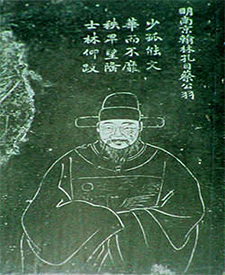 明南京翰林孔目蔡公羽
少孤能文
華而不靡
秩卑望隆
士林仰跂